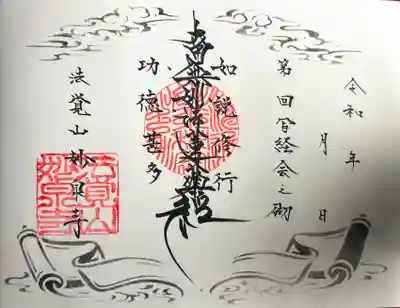 令和　年　月　日
第　回写経会之砌
如説修行
南無妙法蓮華経
功徳甚多
法覚山妙泉寺